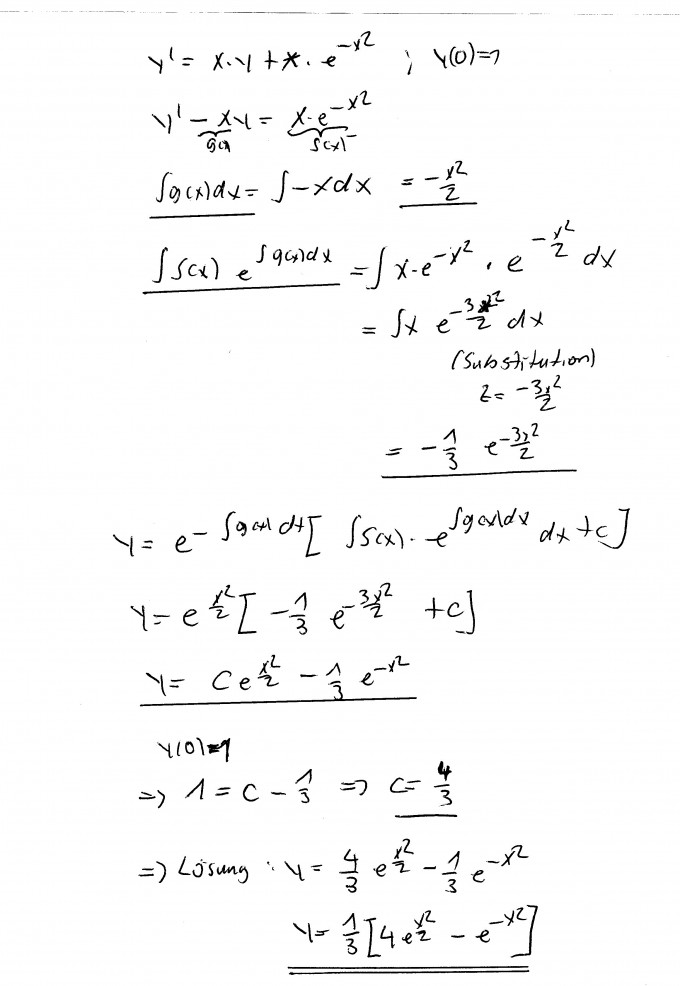 y' = x·y + x·e^{-x²} ; y(0)=1
y' - xy = x·e^{-x²}
g(x) s(x)
∫g(x)dx = ∫-x dx = -x²/2
∫s(x) e^{∫g(x)dx} = ∫x·e^{-x²} · e^{-x²/2} dx
= ∫x e^{-3x²/2} dx
(Substitution)
z = -3x²/2
= -1/3 e^{-3x²/2}
y = e^{-∫g(x)dx} [ ∫s(x)·e^{∫g(x)dx} dx + c ]
y = e^{x²/2} [ -1/3 e^{-3x²/2} + c ]
y = C e^{x²/2} - 1/3 e^{-x²}
y(0)=1
=> 1 = C - 1/3 => C = 4/3
=> Lösung : y = 4/3 e^{x²/2} - 1/3 e^{-x²}
y = 1/3 [ 4e^{x²/2} - e^{-x²} ]